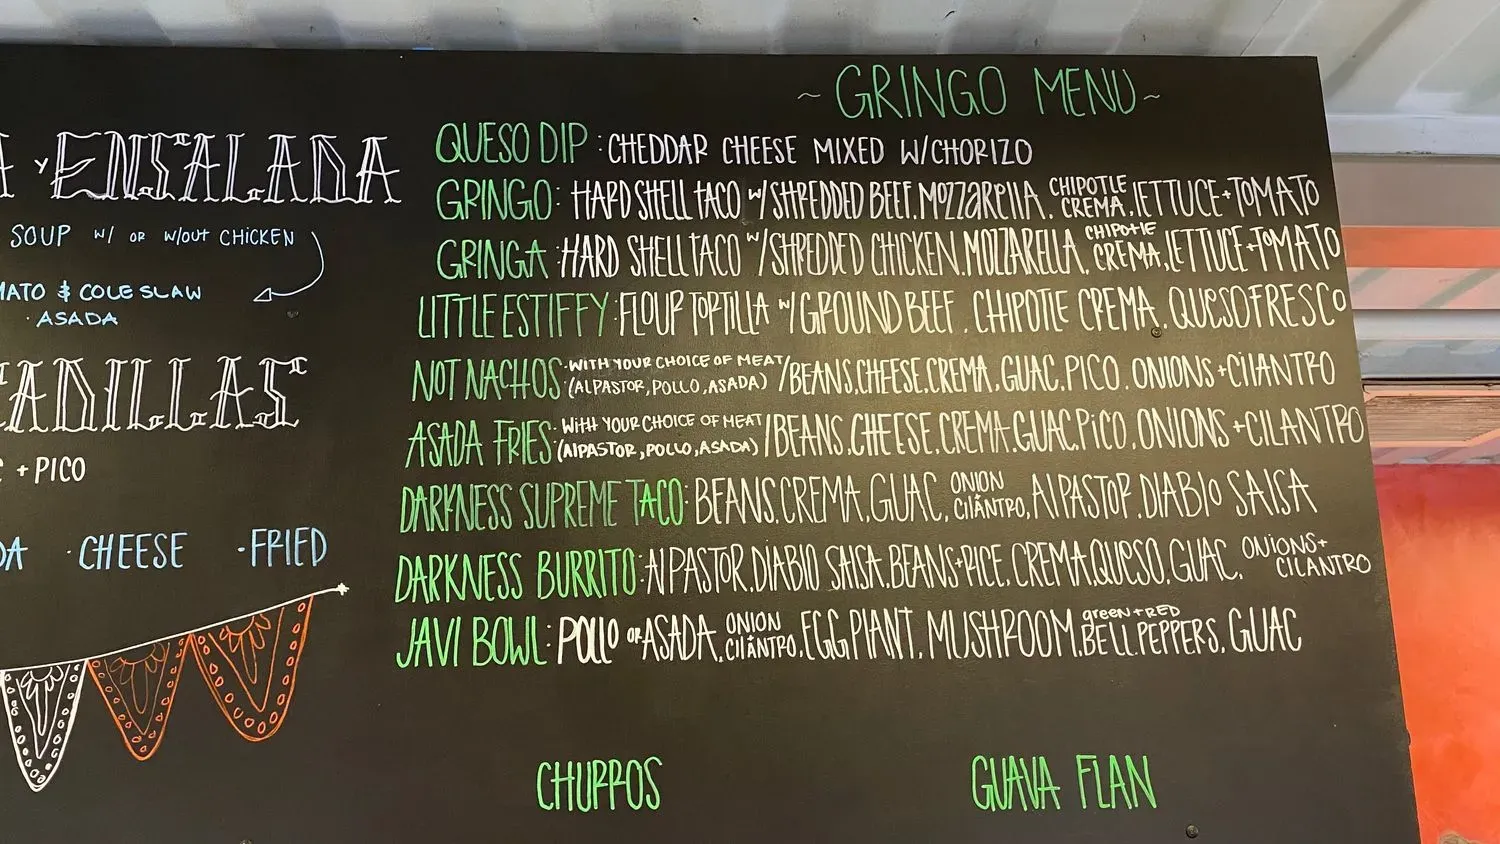 Y ENSALADA
SOUP W/ OR W/OUT CHICKEN
& COLE SLAW
ASADA
+ PICO
· CHEESE · FRIED
~ GRINGO MENU ~
QUESO DIP : CHEDDAR CHEESE MIXED W/CHORIZO
GRINGO: HARD SHELL TACO W/ SHREDDED BEEF, MOZZARELLA, CHIPOTLE CREMA, LETTUCE + TOMATO
GRINGA : HARD SHELL TACO W/ SHREDDED CHICKEN, MOZZARELLA, CHIPOTLE CREMA, LETTUCE + TOMATO
LITTLE ESTIFFY : FLOUR TORTILLA W/ GROUND BEEF, CHIPOTLE CREMA, QUESO FRESCO
NOT NACHOS : WITH YOUR CHOICE OF MEAT (ALPASTOR, POLLO, ASADA) / BEANS, CHEESE, CREMA, GUAC, PICO, ONIONS + CILANTRO
ASADA FRIES : WITH YOUR CHOICE OF MEAT (ALPASTOR, POLLO, ASADA) / BEANS, CHEESE, CREMA, GUAC, PICO, ONIONS + CILANTRO
DARKNESS SUPREME TACO: BEANS, CREMA, GUAC, ONION CILANTRO, ALPASTOR, DIABLO SALSA
DARKNESS BURRITO: ALPASTOR, DIABLO SALSA, BEANS + RICE, CREMA, QUESO, GUAC, ONIONS + CILANTRO
JAVI BOWL: POLLO OR ASADA, ONION CILANTRO, EGGPLANT, MUSHROOM, green + RED BELL PEPPERS, GUAC
CHURROS
GUAVA FLAN